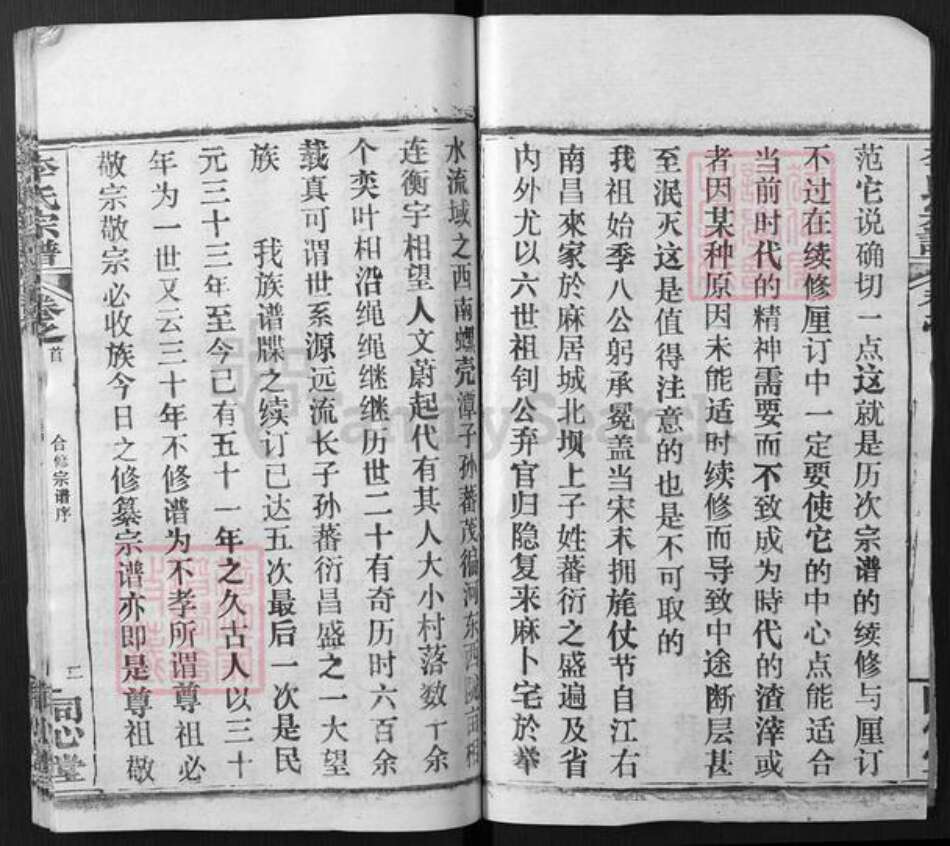 范它说确切一点这就是历次宗谱的续修与厘订
不过在续修厘订中一定要使它的中心点能适合
当前时代的精神需要而不致成为時代的渣滓或
者因某种原因未能适时续修而导致中途断层甚
至泯灭这是值得注意的也是不可取的
我祖始季八公躬承冕盖当宋末拥旄仗节自江右
南昌來家於麻居城北坝上子姓蕃衍之盛遍及省
内外尤以六世祖钊公弃官归隐复来麻卜宅於举
水流域之西南螺壳潭子孙蕃茂徧河东西
连衡宇相望人文蔚起代有其人大小村落数十余
个奕叶相沿绳绳继继历世二十有奇历时六百余
载真可谓世系源远流长子孙蕃衍昌盛之一大望
族　我族谱牒之续订已达五次最后一次是民
元三十三年至今已有五十一年之久古人以三十
年为一世又云三十年不修谱为不孝所谓尊祖必
敬宗敬宗必收族今日之修纂宗谱亦即是尊祖敬
李氏宗谱 卷之首 合修宗谱序 二 同心堂
FamilySearch